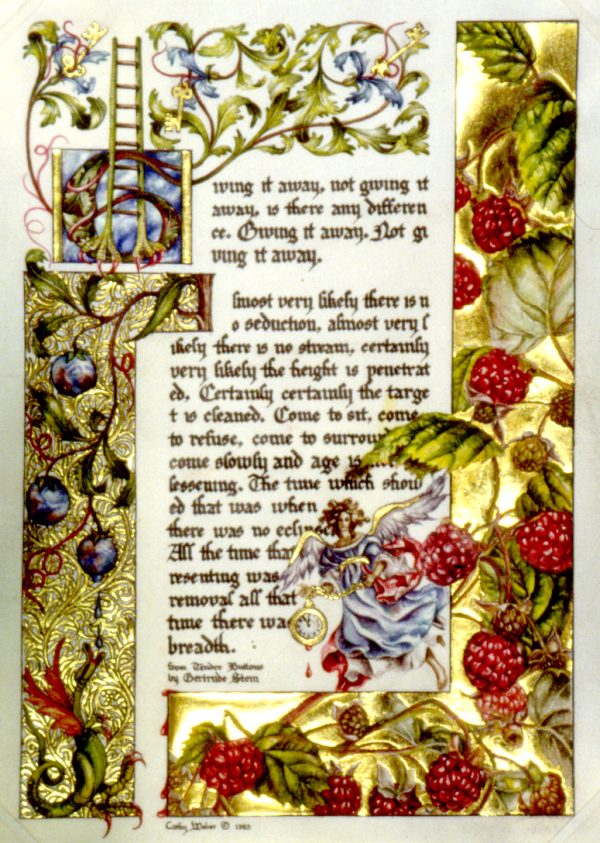 Giving it away, not giving it
away, is there any differen
ce. Giving it away. Not gi
ving it away.
Almost very likely there is n
o seduction, almost very l
ikely there is no stream, certainly
very likely the height is penetrat
ed. Certainly certainly the targe
t is cleaned. Come to sit, come
to refuse, come to surround
come slowly and age is not
lessening. The time which show
ed that was when
there was no eclipse
All the time that
resenting was
removal all that
time there was
breadth.
from Tender Buttons
by Gertrude Stein
Cathy Weber © 1983